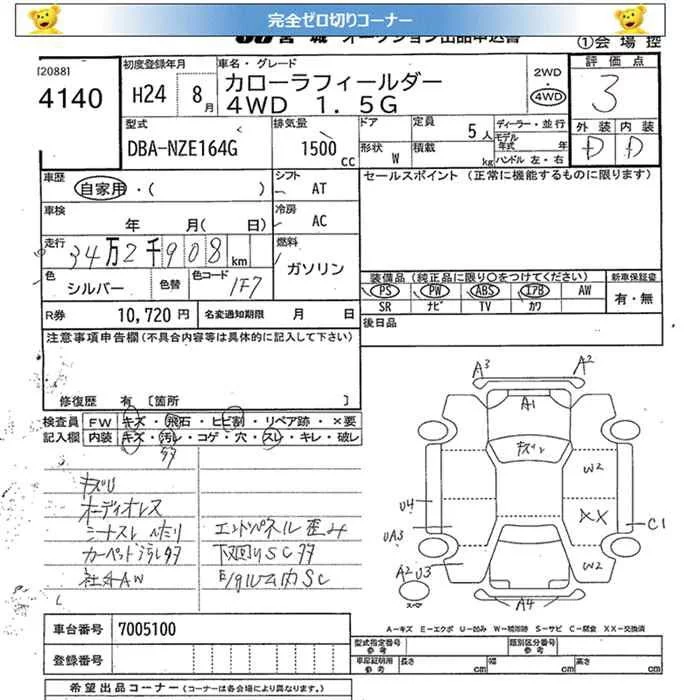 完全ゼロ切りコーナー
JU 宮城 オークション出品申込書
①会場控
[2088]
4140
初度登録年月
H24 8月
車名・グレード
カローラフィールダー
4WD 1.5G
2WD
・
4WD
評価点
3
外装 内装
D D
型式
DBA-NZE164G
排気量
1500 cc
ドア
形状 W
定員 5人
積載 kg
ディーラー・並行
モデル年式 年
ハンドル 左・右
車歴
自家用・( )
シフト
AT
セールスポイント (正常に機能するものに限ります)
車検
年 月( 日)
冷房
AC
走行
34万2千908km
燃料
ガソリン
色
シルバー
色替
色コード
1F7
装備品 (純正品に限り○をつけてください)
新車保証書
PS PW ABS エアB AW
SR ナビ TV カワ
有・無
R券 10,720円
名変通知期限 月 日
後日品
注意事項申告欄 (不具合内容等は具体的に記入して下さい)
修復歴 有 [箇所 ]
検査員
記入欄
FW キズ・飛石・ヒビ割・リペア跡・×要
内装 キズ・汚レ・コゲ・穴・スレ・キレ・破レ
キズU
オーディオレス
シートスレ ヘタリ
カーペット汚レ
社外AW
エンドパネル歪み
下廻りSC
SC
A3 A2
A1
キズ
W2
XX
C1
W2
U4
UA3
A2 U3
A4
スペア
A-キズ E-エクボ U-凹み W-補修跡 S-サビ C-腐食 XX-交換済
車台番号 7005100
登録番号
型式指定番号 参考
類別区分番号 参考
車庫証明用 参考
長さ cm
幅 cm
高さ cm
希望出品コーナー (コーナーは各会場により異なります。)